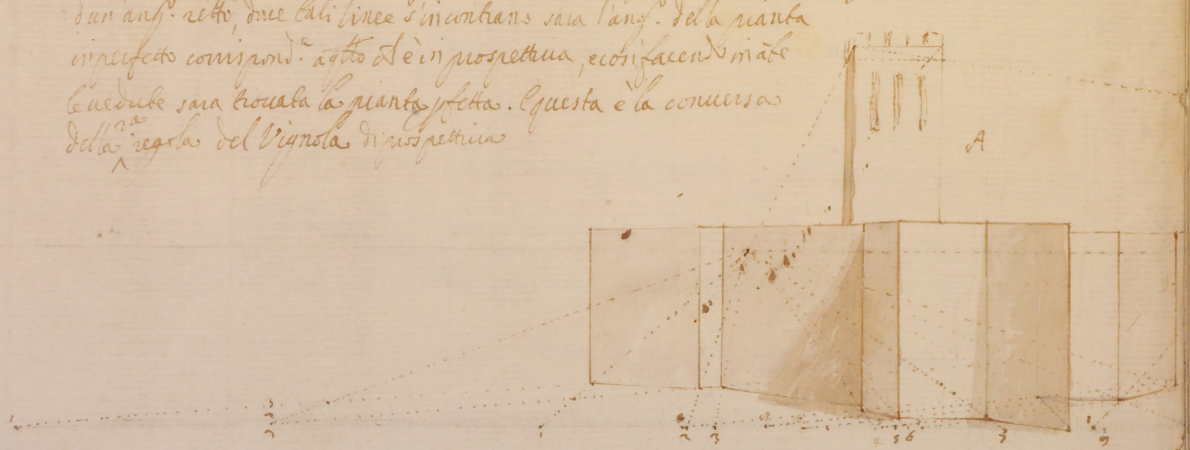 d'un ang.º retto, dove tali linee s'incontrano sara l'ang.º della pianta
imperfetto corrispond.e a q.llo ch'è in prospettiva, e così facendo in a.te
le vedute sara trovata la pianta pfetta. E questa è la conversa
della 2a regola del Vignola di prospettiva
A
1 3 2 1 2 3 4 5 6 9